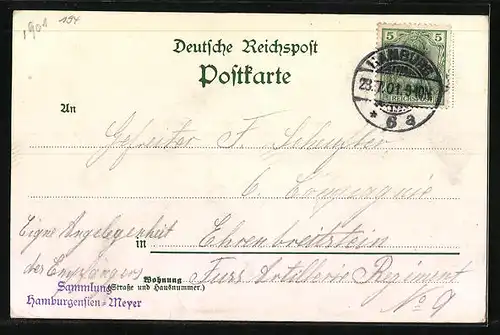 1901 194
Deutsche Reichspost
Postkarte
5 5
REICHSPOST
HAMBURG
23.7.01. 9-10V.
* 6 a
An
Gefreiter F.
6. Compagnie
Eigne Angelegenheit
in Ehrenbreitstein
des Empfängers
Wohnung
(Straße und Hausnummer.)
Fuss Artillerie Regiment
No 9
Sammlung
Hamburgensien-Meyer